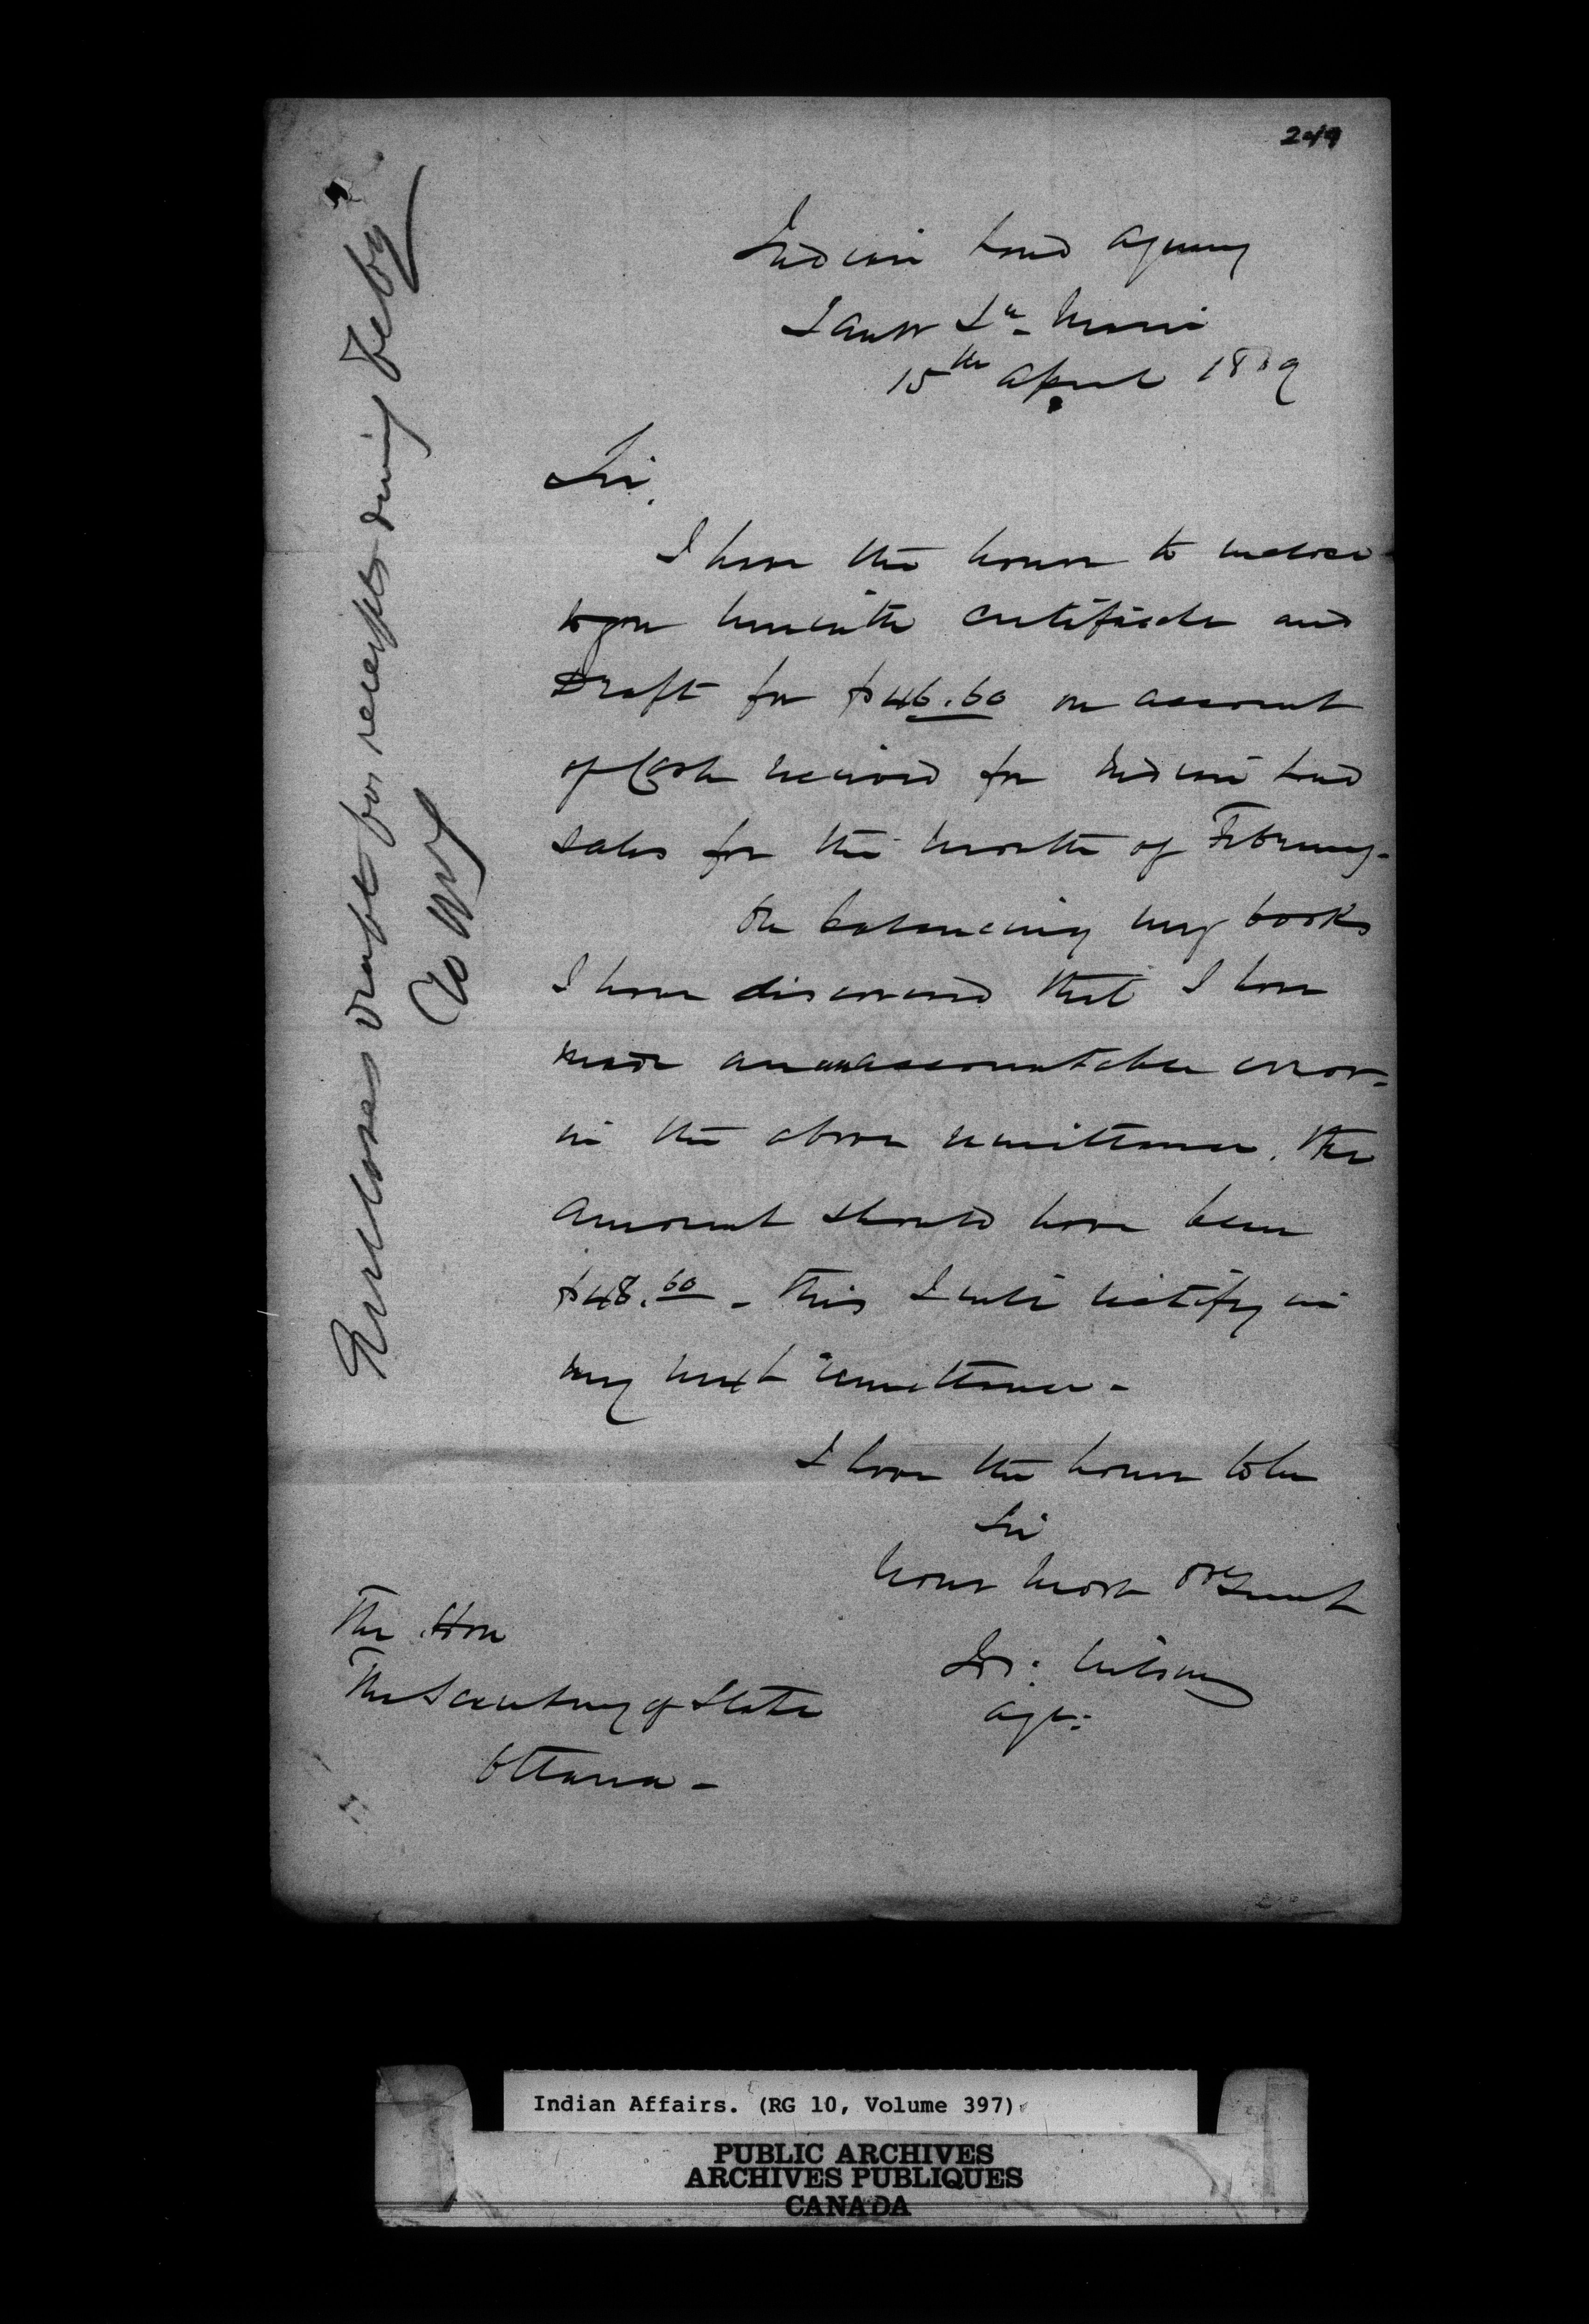 249
Indian Land Agency
Sault Ste. Marie
15th April 1869
Sir,
I have the honor to inclose
to you herewith certificate and
Draft for $46.60 on account
of Cash received for Indian Land
Sales for the month of February-
On balancing my books
I have discovered that I have
made an unaccountable error-
in the above remittance. The
amount should have been
$48.60 - this I will rectify in
my next remittance-
I have the honor to be
Sir
Your most obt Servt
Jos: Wilson
Agt:
The Hon
The Secretary of State
Ottawa-
Encloses draft for receipts during Feby
Indian Affairs. (RG 10, Volume 397)
PUBLIC ARCHIVES
ARCHIVES PUBLIQUES
CANADA